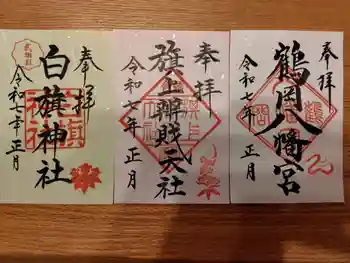 奉拝
鶴岡八幡宮
令和七年正月
奉拝
旗上辨財天社
令和七年正月
奉拝
白旗神社
令和七年正月